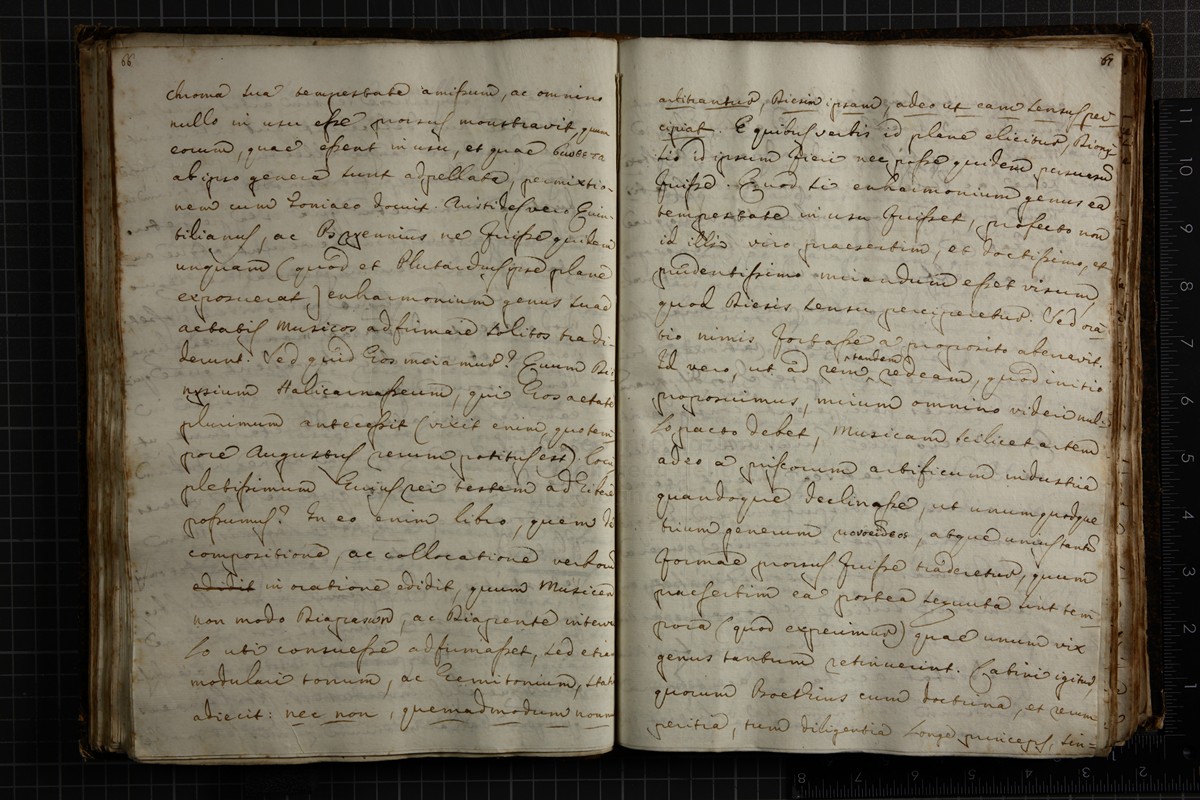 66
chroma sua tempestate amissum, ac omnino
nullo in usu esse prorsus monstravit, quum
eorum, quae essent in usu, et quae
ab ipso genera sunt adpellata, permixtio-
nem cum toniaeo docuit. Aristides vero Quin-
tilianus, ac Bryennius ne fuisse quidem
unquam (quod et Plutarchus ipse plane
exposuerat) enharmonium genus suae
aetatis Musicos adfirmare solitos tradi-
derunt. Sed quid hos miramur? Quum Dio-
nysium Halicarnasseum, qui hos aetate
plurimum antecessit (vixit enim, quo tem-
pore Augustus rerum potitus est) locu-
pletissimum hujus rei testem adhibere
possumus? In eo enim libro, quem de
compositione, ac collocatione verborum
edidit in oratione edidit, quum Musicen
non modo Diapason, ac Diapente interval-
lo uti consuesse adfirmasset, sed etiam
modulari tonum, ac hemitonium, statim
adiecit: nec non, quemadmodum nonnulli
67
arbitrantur, Diesin ipsam, adeo ut eam sensus per-
cipiat. E quibus verbis id plane elicitur, Diony-
sio id ipsum fieri nec posse quidem persuasum
fuisse. Quod si enharmonium genus ea
tempestate in usu fuisset, profecto non
id illi viro praesertim, et doctissimo, et
prudentissimo mirandum esset visum,
quod Diesis sensu perciperetur. Sed ora-
tio nimis fortasse a proposito aberravit.
Id vero, ut ad rem tandem redeam, quod initio
proposuimus, mirum omnino videri nul-
lo pacto debet, Musicam scilicet artem
adeo a priscorum artificum industria
quandoque declinasse, ut unumquodque
trium generum μονοειδες, atque unius tantum
formae prorsus fuisse traderetur, quum
praesertim ea postea sequuta sint tem-
pora (quod experimur) quae unum vix
genus tantum retinuerint. Latini igitur
quorum Boethius cum doctrina, et rerum
peritia, tum diligentia longe princeps, sin=